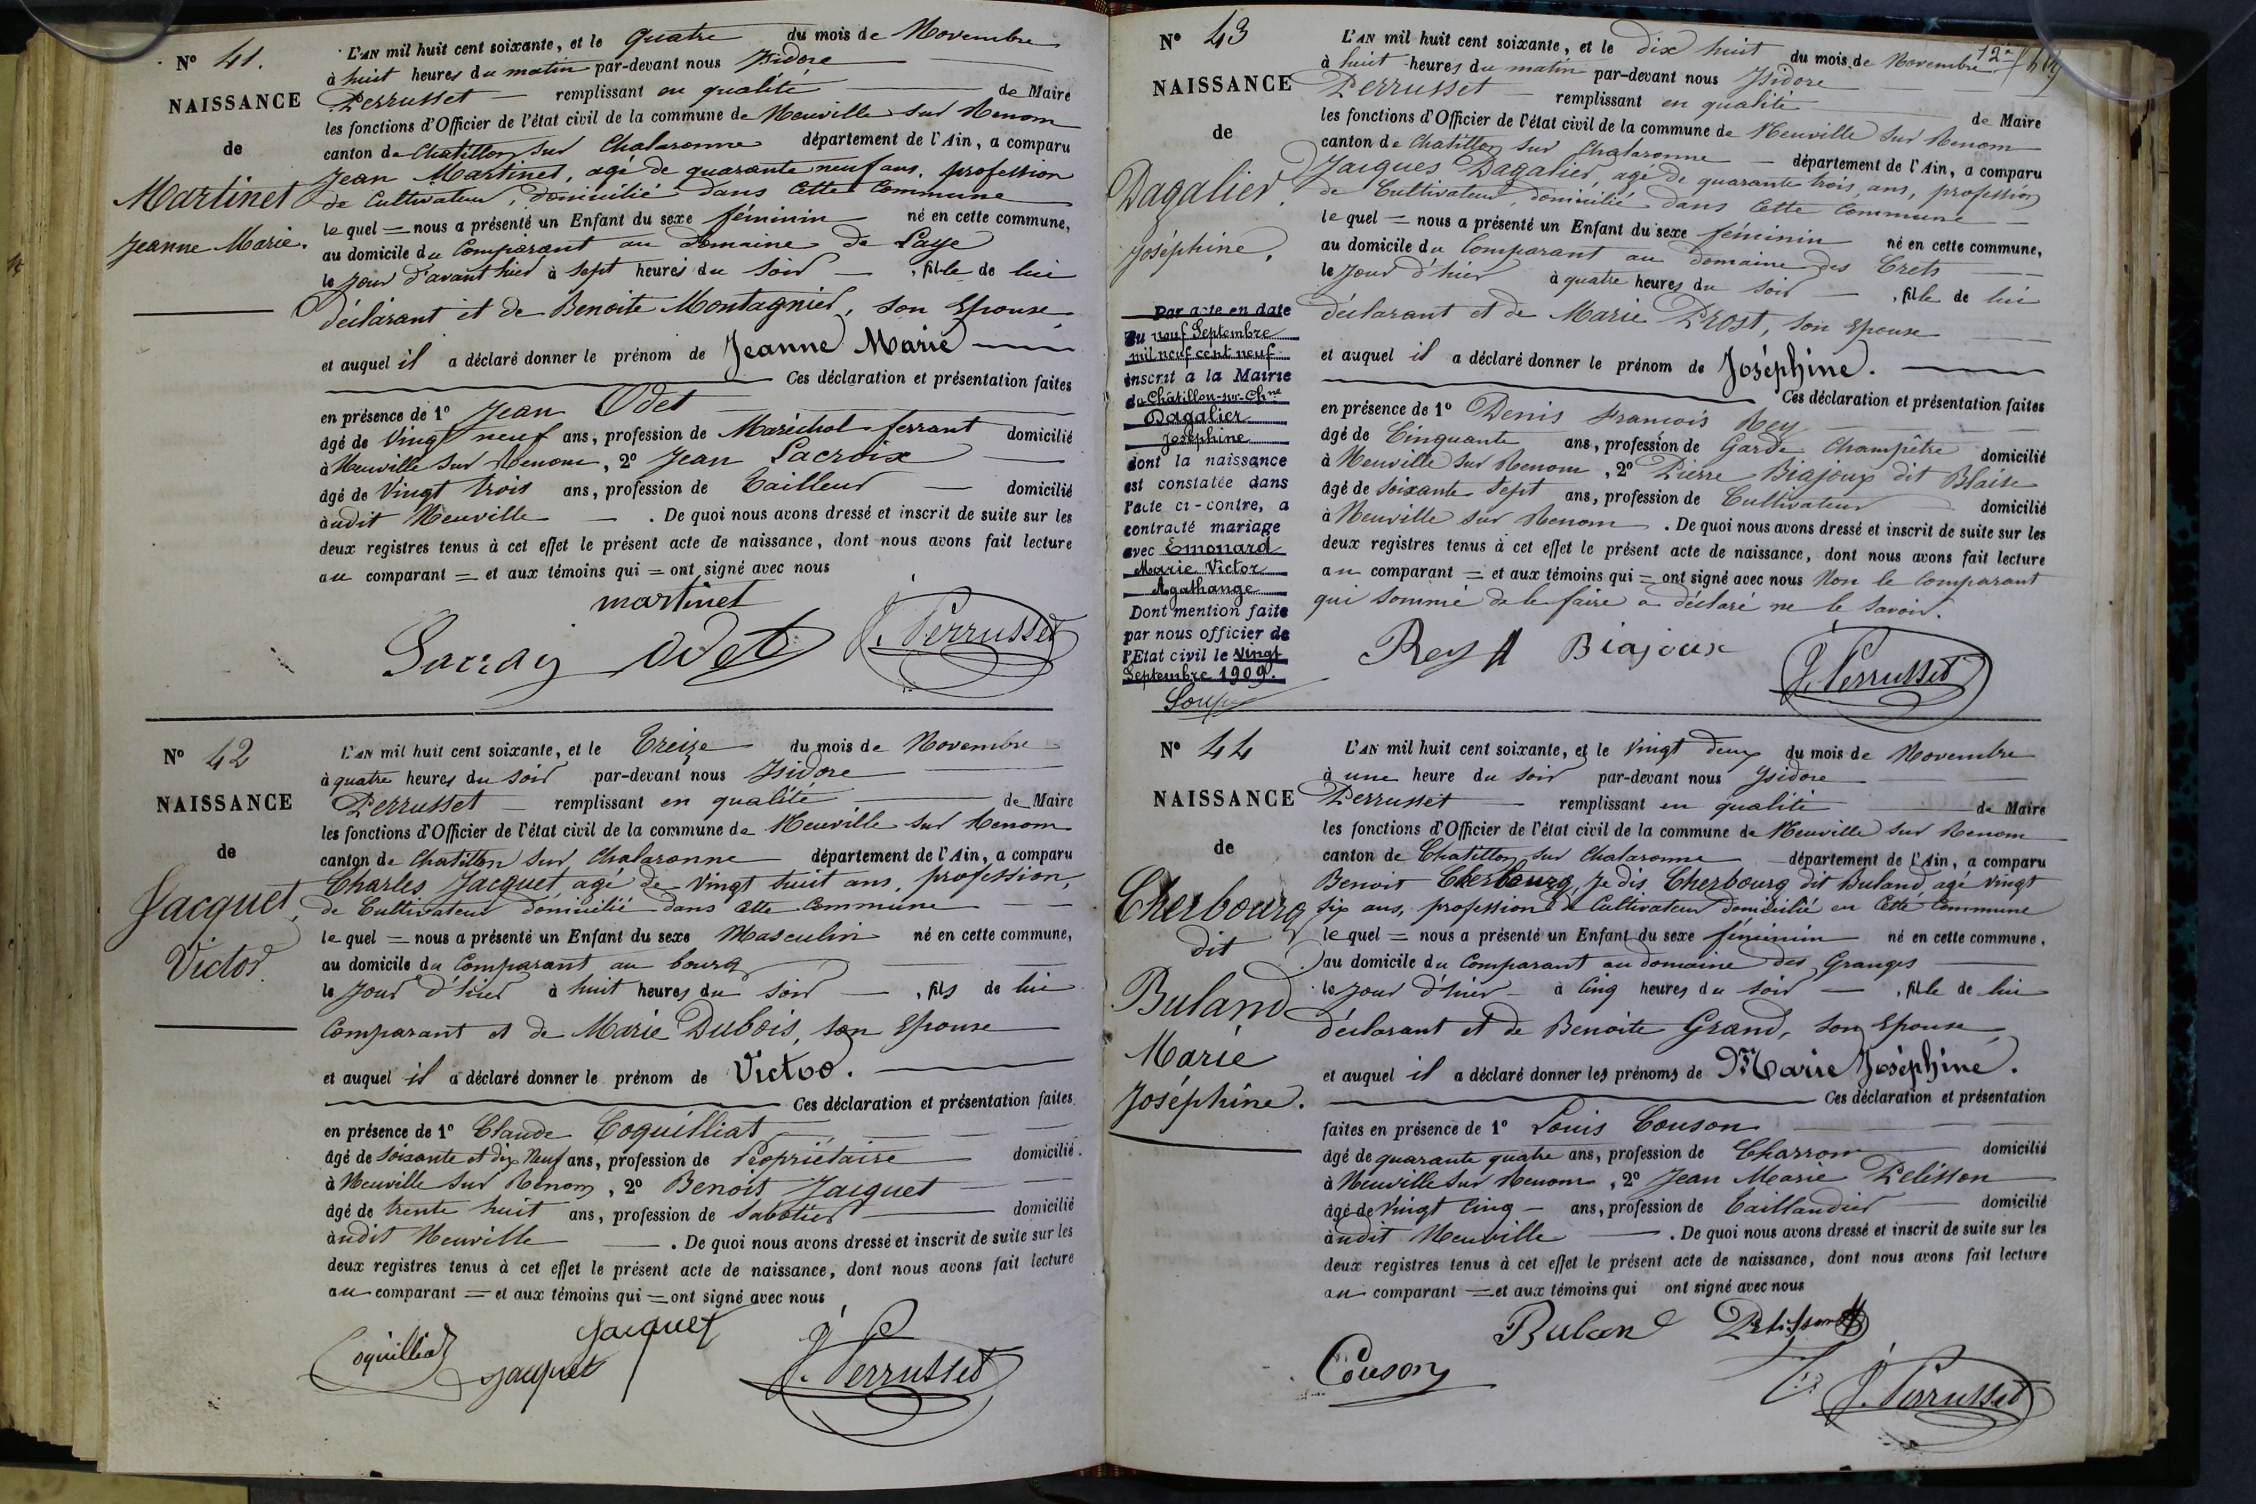 N° 41.
NAISSANCE
de
Martinet
Jeanne Marie.
L'AN mil huit cent soixante, et le quatre du mois de Novembre
à huit heures du matin par-devant nous Isidore
Perrusset remplissant en qualité de Maire
les fonctions d'Officier de l'état civil de la commune de Neuville sur Renom
canton de Chatillon sur Chalaronne département de l'Ain, a comparu
Jean Martinet, agé de quarante neuf ans, profession
de Cultivateur, domicilié dans cette Commune
le quel = nous a présenté un Enfant du sexe féminin né en cette commune,
au domicile du Comparant au Domaine de Laye
le jour d'avant hier à sept heures du soir , fille de lui
déclarant et de Benoite Montagnier, son Epouse
et auquel il a déclaré donner le prénom de Jeanne Marie
Ces déclaration et présentation faites
en présence de 1° Jean Odet
âgé de Vingt neuf ans, profession de Maréchal ferrant domicilié
à Neuville sur Renom, 2° Jean Lacroix
âgé de Vingt trois ans, profession de Tailleur domicilié
àudit Neuville . De quoi nous avons dressé et inscrit de suite sur les
deux registres tenus à cet effet le présent acte de naissance, dont nous avons fait lecture
au comparant = et aux témoins qui = ont signé avec nous
martinet
Odet J. Perrusset
N° 42
NAISSANCE
de
Jacquet,
Victor.
L'AN mil huit cent soixante, et le Treize du mois de Novembre
à quatre heures du soir par-devant nous Isidore
Perrusset remplissant en qualité de Maire
les fonctions d'Officier de l'état civil de la commune de Neuville sur Renom
canton de Chatillon sur Chalaronne département de l'Ain, a comparu
Charles Jacquet, agé de vingt huit ans, profession,
de Cultivateur domicilié dans cette commune
le quel = nous a présenté un Enfant du sexe Masculin né en cette commune,
au domicile du Comparant au bourg
le jour d'hier à huit heures du soir , fils de lui
Comparant et de Marie Dubois, son Epouse
et auquel il a déclaré donner le prénom de Victor.
Ces déclaration et présentation faites
en présence de 1° Claude Coquilliat
âgé de soixante et dix Neuf ans, profession de Propriétaire domicilié.
à Neuville sur Renom, 2° Benoit Jacquet
âgé de trente huit ans, profession de Sabotier domicilié
àudit Neuville . De quoi nous avons dressé et inscrit de suite sur les
deux registres tenus à cet effet le présent acte de naissance, dont nous avons fait lecture
au comparant = et aux témoins qui = ont signé avec nous
Coquilliat Jacquet Jacquet J. Perrusset
N° 43
NAISSANCE
de
Dagalier.
Joséphine.
Par acte en date
du neuf Septembre
mil neuf cent neuf
inscrit à la Mairie
de Châtillon-sur-Chne
Dagalier
Joséphine
dont la naissance
est constatée dans
l'acte ci-contre, a
contracté mariage
avec Emonard
Marie Victor
Agathange
Dont mention faite
par nous officier de
l'Etat civil le vingt
Septembre 1909.
L'AN mil huit cent soixante, et le dix huit du mois de Novembre
à huit heures du matin par-devant nous Isidore
Perrusset remplissant en qualité de Maire
les fonctions d'Officier de l'état civil de la commune de Neuville sur Renom
canton de Chatillon sur Chalaronne département de l'Ain, a comparu
Jacques Dagalier, agé de quarante trois, ans, profession
de Cultivateur, domicilié dans cette Commune
le quel = nous a présenté un Enfant du sexe féminin né en cette commune,
au domicile du Comparant au domaine des Crets
le jour d'hier à quatre heures du soir , fille de lui
déclarant et de Marie Prost, son Epouse
et auquel il a déclaré donner le prénom de Joséphine.
Ces déclaration et présentation faites
en présence de 1° Denis François Rey
âgé de Cinquante ans, profession de Garde Champêtre domicilié
à Neuville sur Renom, 2° Pierre Biajoux dit Blaise
âgé de soixante sept ans, profession de Cultivateur domicilié
à Neuville sur Renom . De quoi nous avons dressé et inscrit de suite sur les
deux registres tenus à cet effet le présent acte de naissance, dont nous avons fait lecture
au comparant = et aux témoins qui = ont signé avec nous Non le Comparant
qui sommé de le faire a déclaré ne le savoir.
Rey Biajoux J. Perrusset
N° 44
NAISSANCE
de
Cherbourg
dit
Buland
Marie
Joséphine.
L'AN mil huit cent soixante, et le vingt deux du mois de Novembre
à une heure du soir par-devant nous Ysidore
Perrusset remplissant en qualité de Maire
les fonctions d'Officier de l'état civil de la commune de Neuville sur Renom
canton de Chatillon sur Chalaronne département de l'Ain, a comparu
Benoit Cherbourg, Je dis Cherbourg dit Buland, agé vingt
six ans, profession de Cultivateur domicilié en Cette Commune
le quel = nous a présenté un Enfant du sexe féminin né en cette commune,
au domicile du Comparant au domaine des Granges
le jour d'hier à Cinq heures du soir , fille de lui
déclarant et de Benoite Grand, son Epouse
et auquel il a déclaré donner les prénoms de Marie Joséphine.
Ces déclaration et présentation
faites en présence de 1° Louis Couson
âgé de quarante quatre ans, profession de Charron domicilié
à Neuville sur Renom, 2° Jean Marie Pelisson
âgé de Vingt Cinq ans, profession de Taillandier domicilié
àudit Neuville . De quoi nous avons dressé et inscrit de suite sur les
deux registres tenus à cet effet le présent acte de naissance, dont nous avons fait lecture
au comparant = et aux témoins qui ont signé avec nous
Buland Pelisson
Couson J. Perrusset